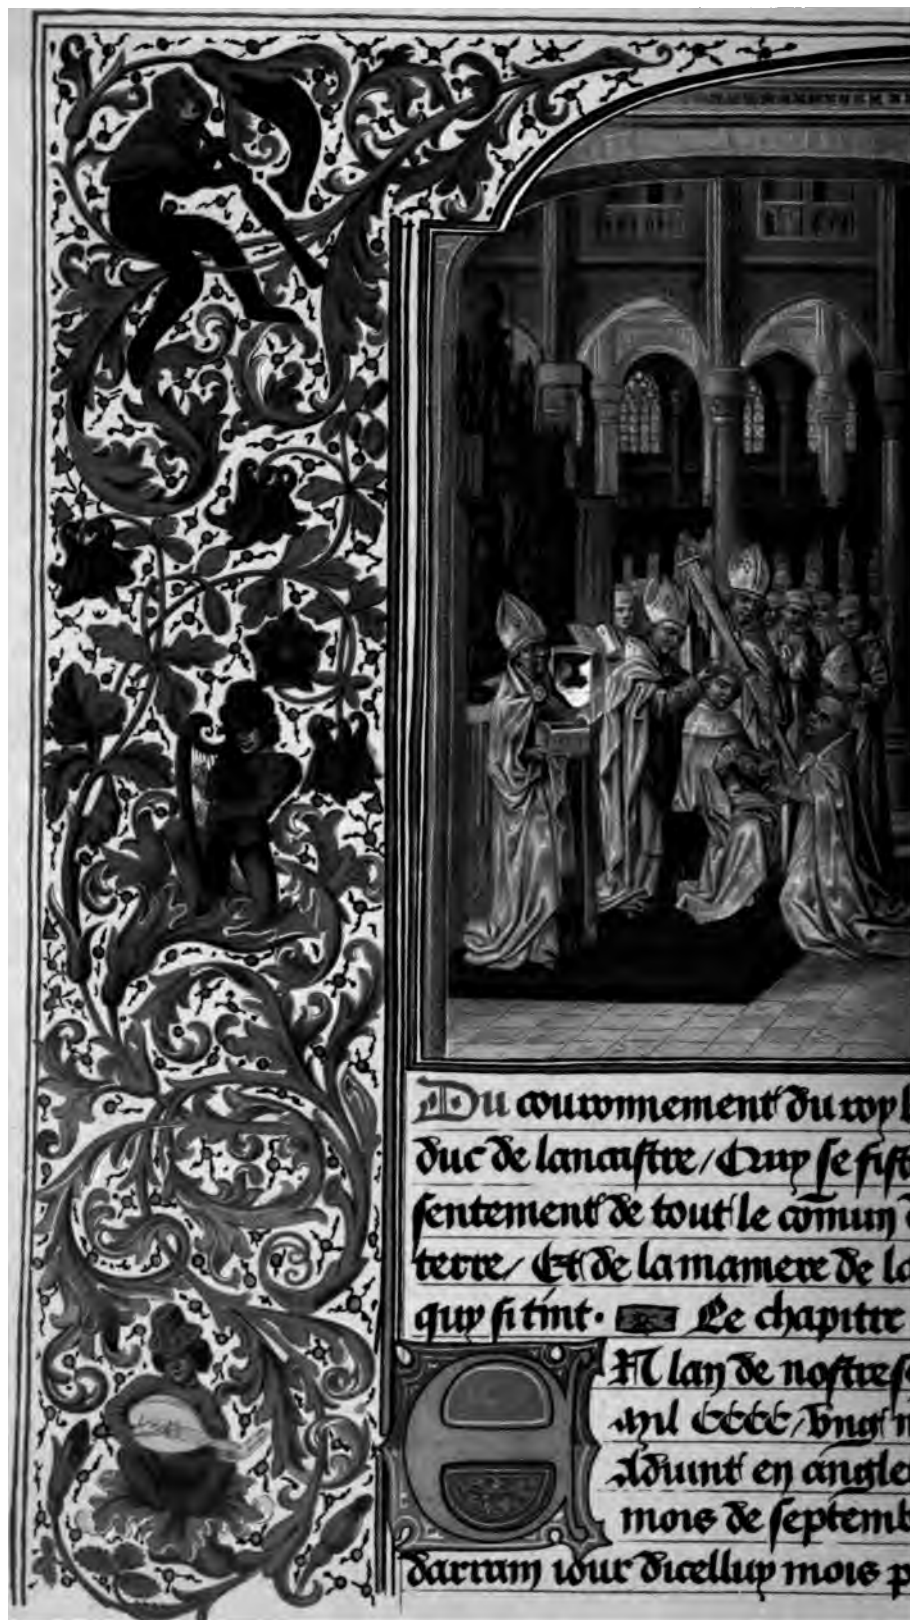 Du couronnement du roy
duc de lancastre / Quy se fist
sentement de tout le comun
terre / Et de la maniere de la
quy si tint · Le chapitre
EN lan de nostre se
mil CCCC / vng
Aduint en angle
mois de septemb
darrain iour dicelluy mois p